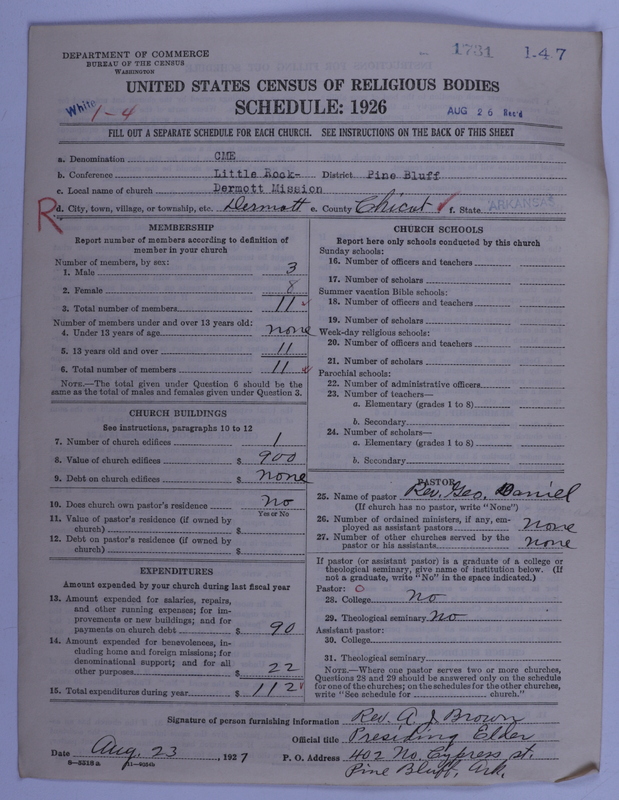 DEPARTMENT OF COMMERCE
BUREAU OF THE CENSUS
WASHINGTON
1731 1-47
UNITED STATES CENSUS OF RELIGIOUS BODIES
SCHEDULE: 1926
White 1-4
AUG 26 Rec'd
FILL OUT A SEPARATE SCHEDULE FOR EACH CHURCH. SEE INSTRUCTIONS ON THE BACK OF THIS SHEET
a. Denomination CME
b. Conference Little Rock- District Pine Bluff
c. Local name of church Dermott Mission
R d. City, town, village, or township, etc. Dermott e. County Chicot ✓ f. State ARKANSAS
MEMBERSHIP
Report number of members according to definition of
member in your church
Number of members, by sex:
1. Male 3
2. Female 8
3. Total number of members 11 ✓
Number of members under and over 13 years old:
4. Under 13 years of age none
5. 13 years old and over 11
6. Total number of members 11 ✓
NOTE.—The total given under Question 6 should be the
same as the total of males and females given under Question 3.
CHURCH BUILDINGS
See instructions, paragraphs 10 to 12
7. Number of church edifices 1
8. Value of church edifices $ 900
9. Debt on church edifices $ none
10. Does church own pastor's residence no
Yes or No
11. Value of pastor's residence (if owned by
church) $
12. Debt on pastor's residence (if owned by
church) $
EXPENDITURES
Amount expended by your church during last fiscal year
13. Amount expended for salaries, repairs,
and other running expenses; for im-
provements or new buildings; and for
payments on church debt $ 90
14. Amount expended for benevolences, in-
cluding home and foreign missions; for
denominational support; and for all
other purposes $ 22
15. Total expenditures during year $ 112 ✓
CHURCH SCHOOLS
Report here only schools conducted by this church
Sunday schools:
16. Number of officers and teachers
17. Number of scholars
Summer vacation Bible schools:
18. Number of officers and teachers
19. Number of scholars
Week-day religious schools:
20. Number of officers and teachers
21. Number of scholars
Parochial schools:
22. Number of administrative officers
23. Number of teachers—
a. Elementary (grades 1 to 8)
b. Secondary
24. Number of scholars—
a. Elementary (grades 1 to 8)
b. Secondary
PASTOR
25. Name of pastor Rev. Geo. Daniel
(If church has no pastor, write "None")
26. Number of ordained ministers, if any, em-
ployed as assistant pastors none
27. Number of other churches served by the
pastor or his assistants none
If pastor (or assistant pastor) is a graduate of a college or
theological seminary, give name of institution below. (If
not a graduate, write "No" in the space indicated.)
Pastor: O
28. College no
29. Theological seminary no
Assistant pastor:
30. College
31. Theological seminary
NOTE.—Where one pastor serves two or more churches,
Questions 28 and 29 should be answered only on the schedule
for one of the churches; on the schedules for the other churches,
write "See schedule for church."
Signature of person furnishing information Rev. A. J. Brown
Official title Presiding Elder
Date Aug. 23, 1927 P. O. Address 402 No. Cypress st.
8-5318a 11-9524b Pine Bluff, Ark.